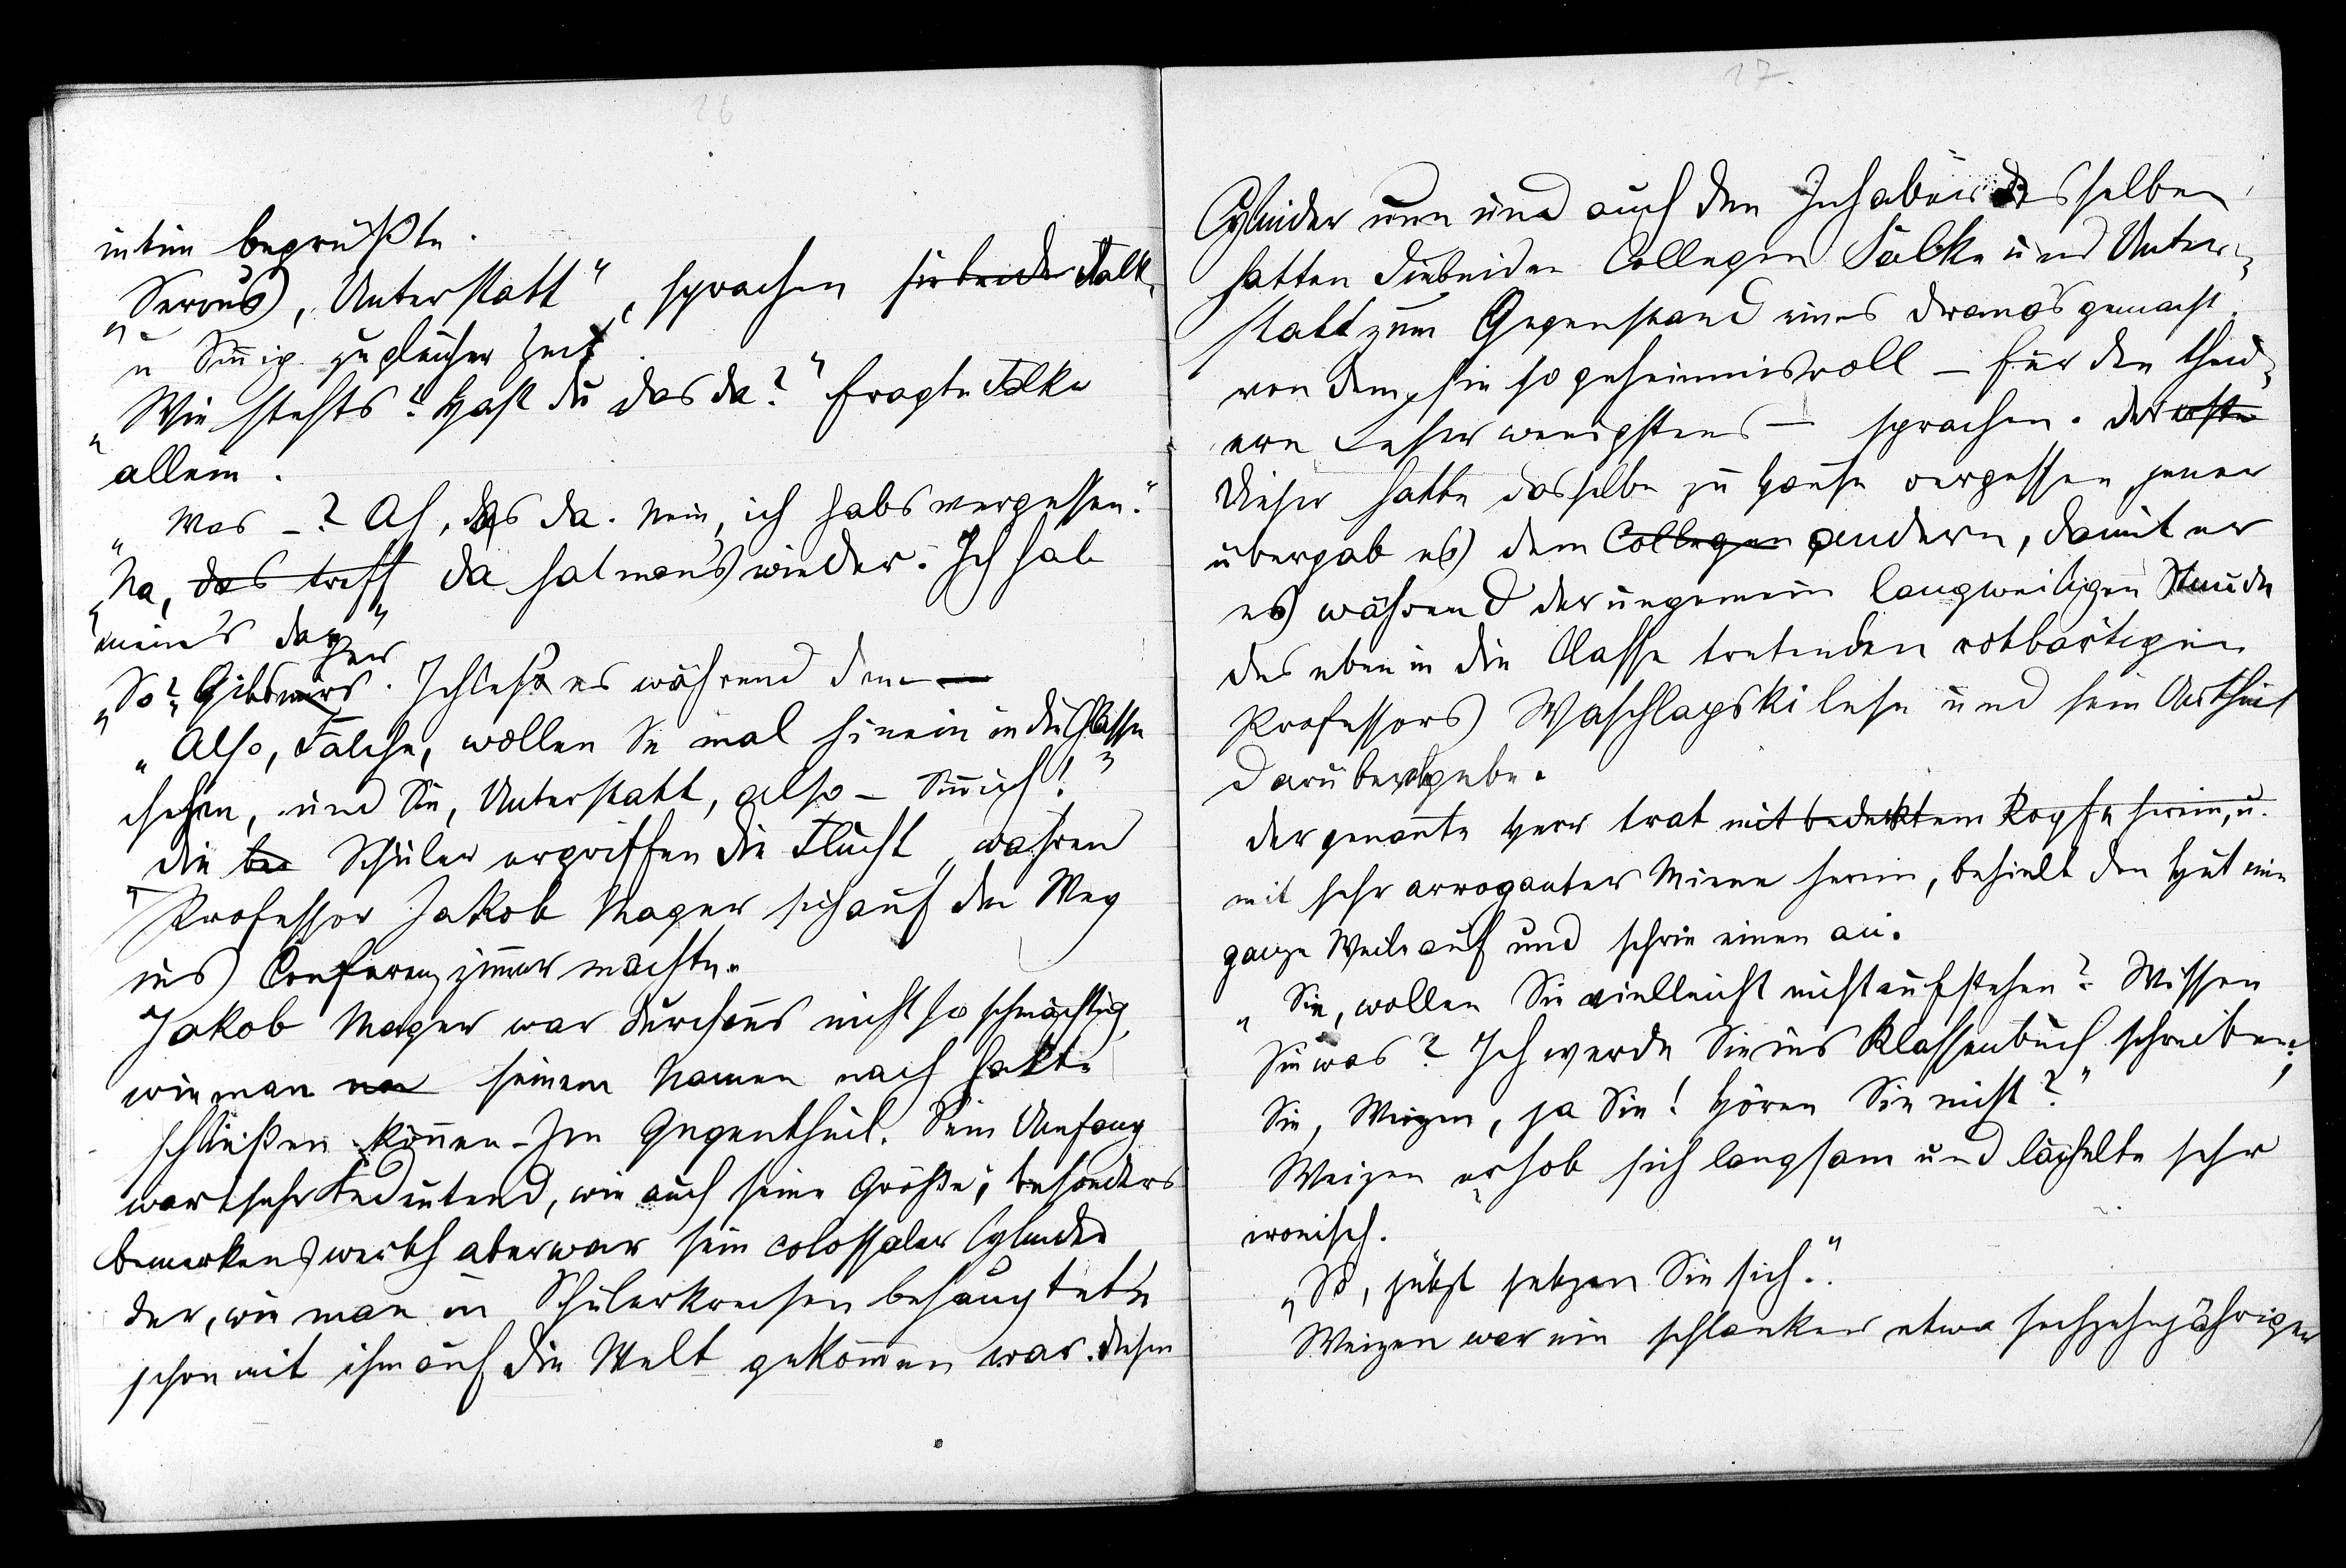 26
intim begrüßte.
„Servus, Unterstatt", sprachen sie beide Falk
u Sinnig zu gleicher Zeit.
„Wie stehts? Hast du das da?" fragte Falke
allein.
„Was –? Ah, das da. Nein, ich habs vergessen."
„Na, das triff da hat man's wieder. Ich hab
mein's da"
„So? Gibs her. Ich les es während dem —
„Also, Falche, wollen Se mal hinein in die Classe
gehen, und Sie, Unterstatt, also – Sinnich!"
Die bei Schüler ergriffen die Flucht, während
Professor Jakob Mager sich auf den Weg
ins Conferenzzimmer machte.
Jakob Mager war durchaus nicht so schmächtig,
wie man na seinem Namen nach hätte
schließen können – Im Gegentheil. Sein Umfang
war sehr bedeutend, wie auch seine Größe; besonders
bemerkenswerth aber war sein colossaler Cylinder
der, wie man in Schülerkreisen behauptete
schon mit ihm auf die Welt gekommen war. Diesen
27.
Cylinder nun und auch den Inhaber desselben
hatten die beiden Collegen Falke und Unter-
statt zum Gegenstand eines Dramas gemacht,
von dem sie so geheimnisvoll – für den theu-
ern Leser wenigstens – sprachen. Der erste
Dieser hatte dasselbe zu Hause vergessen, jener
übergab es dem Collegen andern, damit er
es während der ungemein langweiligen Stunde
des eben in die Classe tretenden rotbärtigen
Professors Waschlapski lese und sein Urtheil
darüber abgebe.
Der genannte Herr trat mit bedecktem Kopfe herein, u.
mit sehr arroganter Miene herein, behielt den Hut eine
ganze Weile auf und schrie einen an.
„Sie, wollen Sie vielleicht nicht aufstehen? Wissen
Sie was? Ich werde Sie ins Klassenbuch schreiben;
Sie, Weizen, ja Sie! Hören Sie nicht?"
Weizen erhob sich langsam und lächelte sehr
ironisch.
„So, jetzt setzen Sie sich."
Weizen war ein schlanker etwa sechzehnjähriger